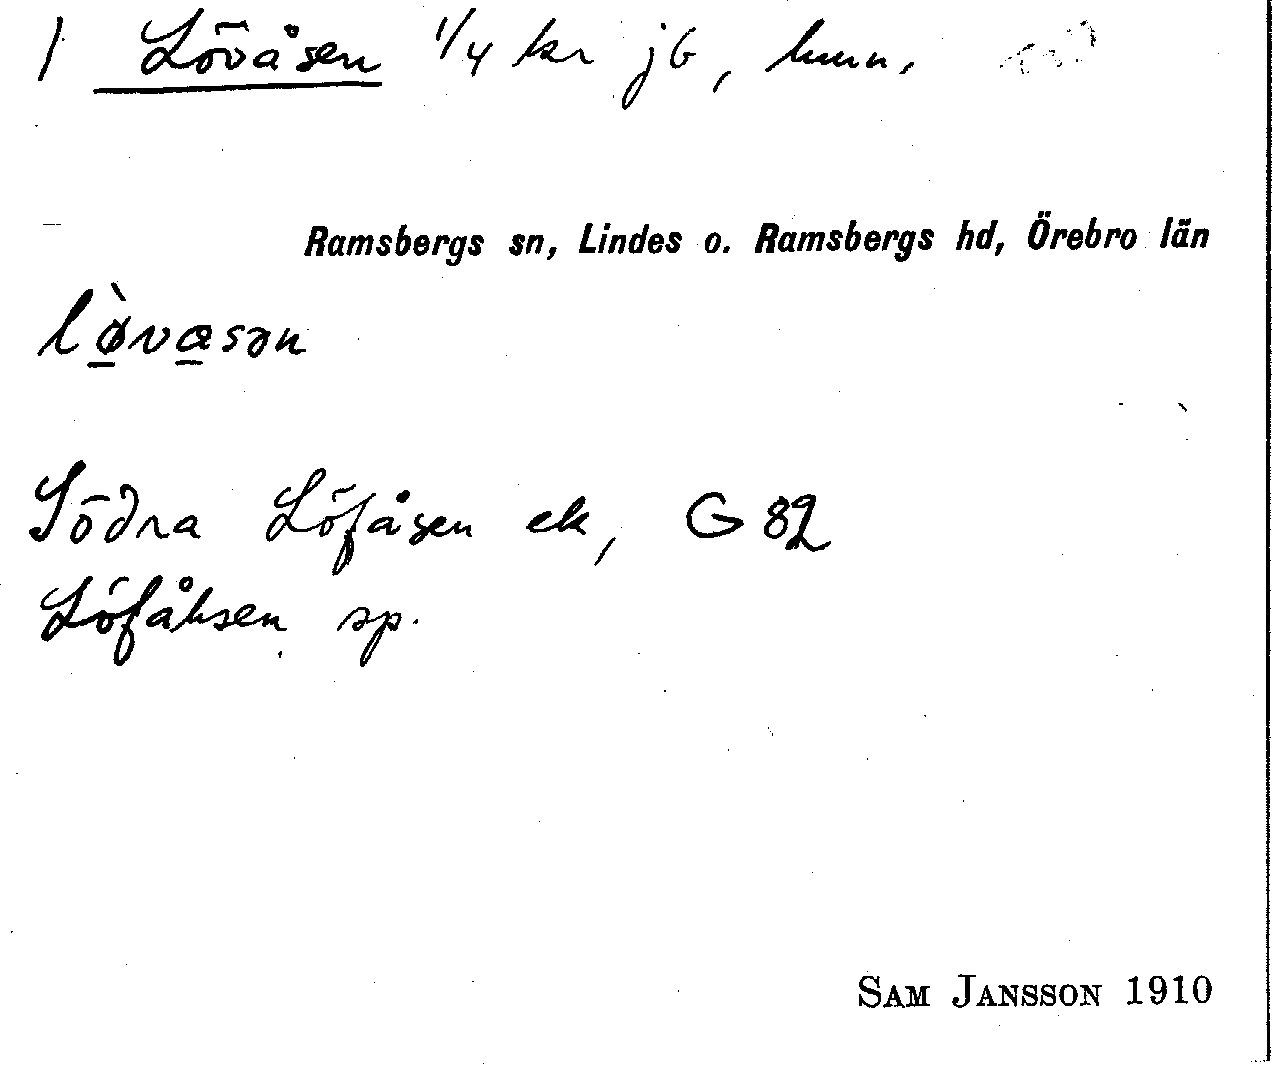 / Lövåsen 1/4 kr jb, hmn,
Ramsbergs sn, Lindes o. Ramsbergs hd, Örebro län
lø̀vɑsən
Södra Löfåsen ek, G 82
Löfåhsen sp.
SAM JANSSON 1910